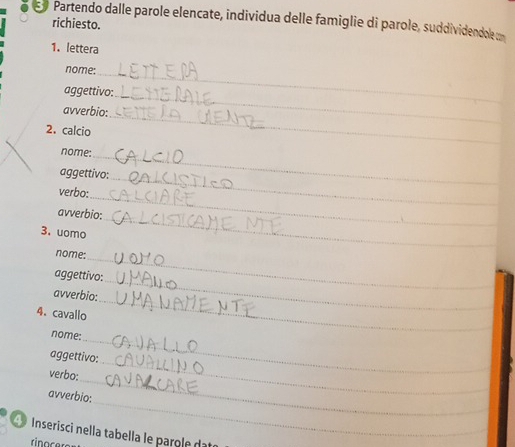 3 Partendo dalle parole elencate, individua delle famiglie di parole, suddividendole com
richiesto.
1. lettera
nome: LETTERA
aggettivo: LETTERALE
avverbio: LETTERALMENTE
2. calcio
nome: CALCIO
aggettivo: CALCISTICO
verbo: CALCIARE
avverbio: CALCISTICAMENTE
3. uomo
nome: UOMO
aggettivo: UMANO
avverbio: UMANAMENTE
4. cavallo
nome: CAVALLO
aggettivo: CAVALLINO
verbo: CAVALCARE
avverbio:
4 Inserisci nella tabella le parole date